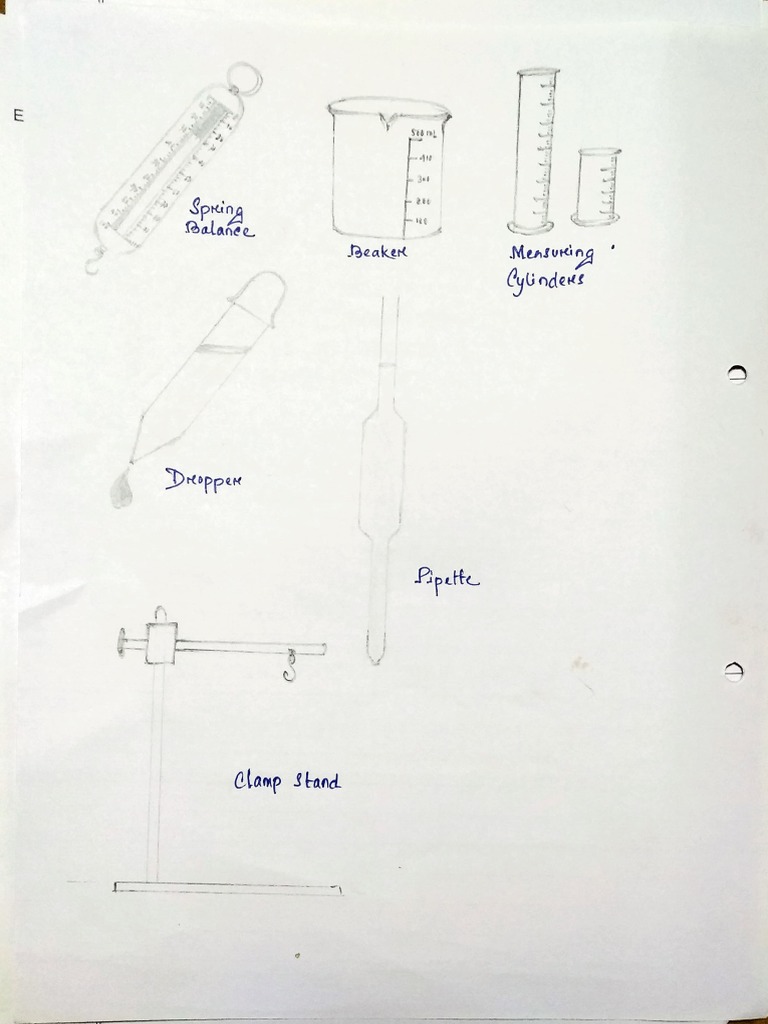 E
Spring
Balance
500 mL
400
300
200
100
Beaker
Measuring
Cylinders
Dropper
Pipette
Clamp Stand